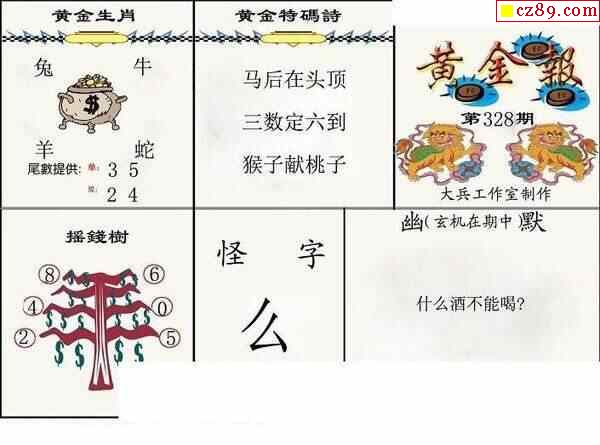 cz89.com
黄金生肖
兔 牛
羊 蛇
尾數提供:
單: 3 5
双: 2 4
黄金特碼詩
马后在头顶
三数定六到
猴子献桃子
黄金報
第328期
大兵工作室制作
摇錢樹
8 6
4 0
2 5
怪 字
么
幽(玄机在期中)默
什么酒不能喝?